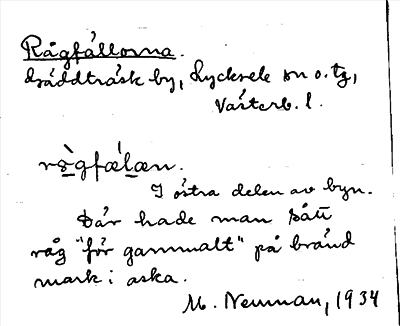 Rågfällorna.
Bräddträsk by, Lycksele sn o. tg,
Västerb. l.
rɷ̀gfæ̀læn.
I östra delen av byn.
Där hade man sått
råg "för gammalt" på bränd
mark i aska.
M. Neuman, 1934